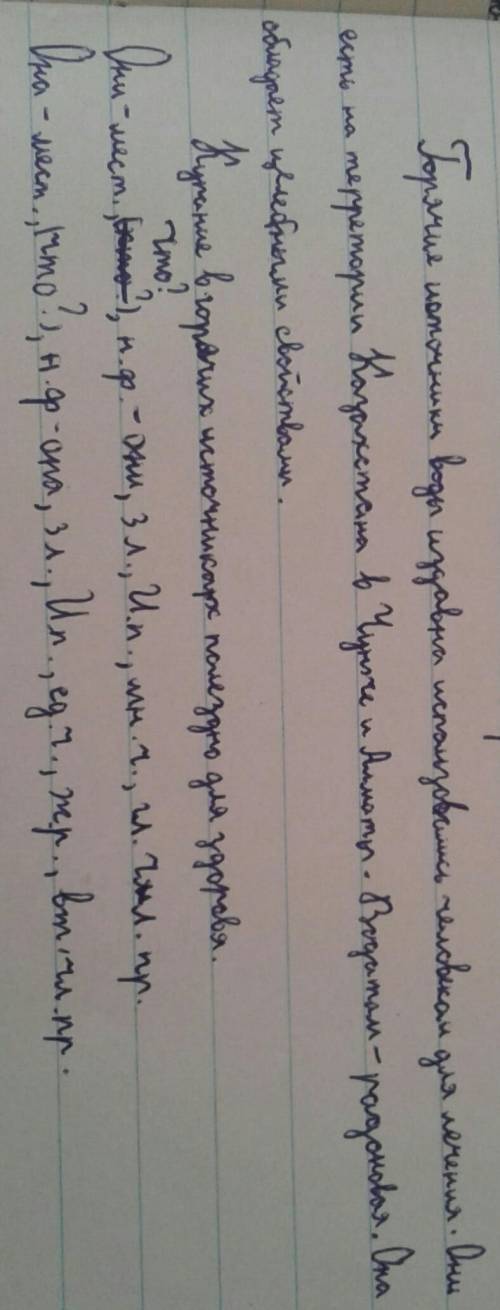 Горячие источники воды издавна использовались человеком для лечения. Они
есть на территории Казахстана в Чундже и Алматы. Вода там - радоновая. Она
обладает целебными свойствами.
Купание в горячих источниках полезно для здоровья.
Они - мест., (что?), н.ф. - они, 3 л., И.п., мн.ч., гл. чл. пр.
Она - мест., (что?), н.ф - она, 3 л., И.п., ед.ч., ж.р., вт. чл. пр.